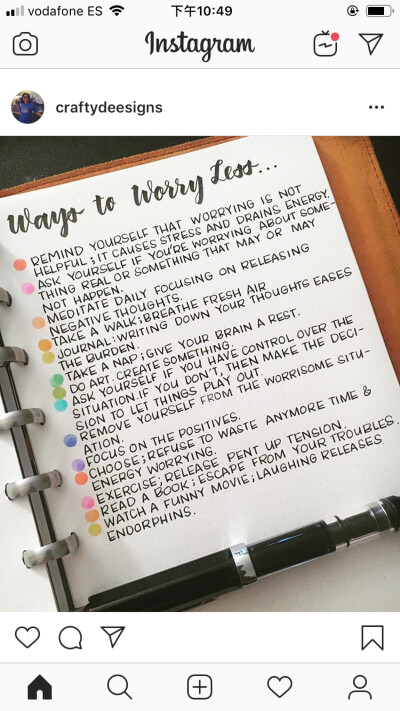 vodafone ES
下午10:49
Instagram
craftydeesigns
Ways to Worry Less...
REMIND YOURSELF THAT WORRYING IS NOT
HELPFUL; IT CAUSES STRESS AND DRAINS ENERGY.
ASK YOURSELF IF YOU'RE WORRYING ABOUT SOME-
THING REAL OR SOMETHING THAT MAY OR MAY
NOT HAPPEN.
MEDITATE DAILY FOCUSING ON RELEASING
NEGATIVE THOUGHTS.
TAKE A WALK; BREATHE FRESH AIR
JOURNAL: WRITING DOWN YOUR THOUGHTS EASES
THE BURDEN.
TAKE A NAP; GIVE YOUR BRAIN A REST.
DO ART. CREATE SOMETHING.
ASK YOURSELF IF YOU HAVE CONTROL OVER THE
SITUATION. IF YOU DON'T, THEN MAKE THE DECI-
SION TO LET THINGS PLAY OUT.
REMOVE YOURSELF FROM THE WORRISOME SITU-
ATION.
FOCUS ON THE POSITIVES.
CHOOSE; REFUSE TO WASTE ANYMORE TIME &
ENERGY WORRYING.
EXERCISE; RELEASE PENT UP TENSION.
READ A BOOK; ESCAPE FROM YOUR TROUBLES.
WATCH A FUNNY MOVIE; LAUGHING RELEASES
ENDORPHINS.